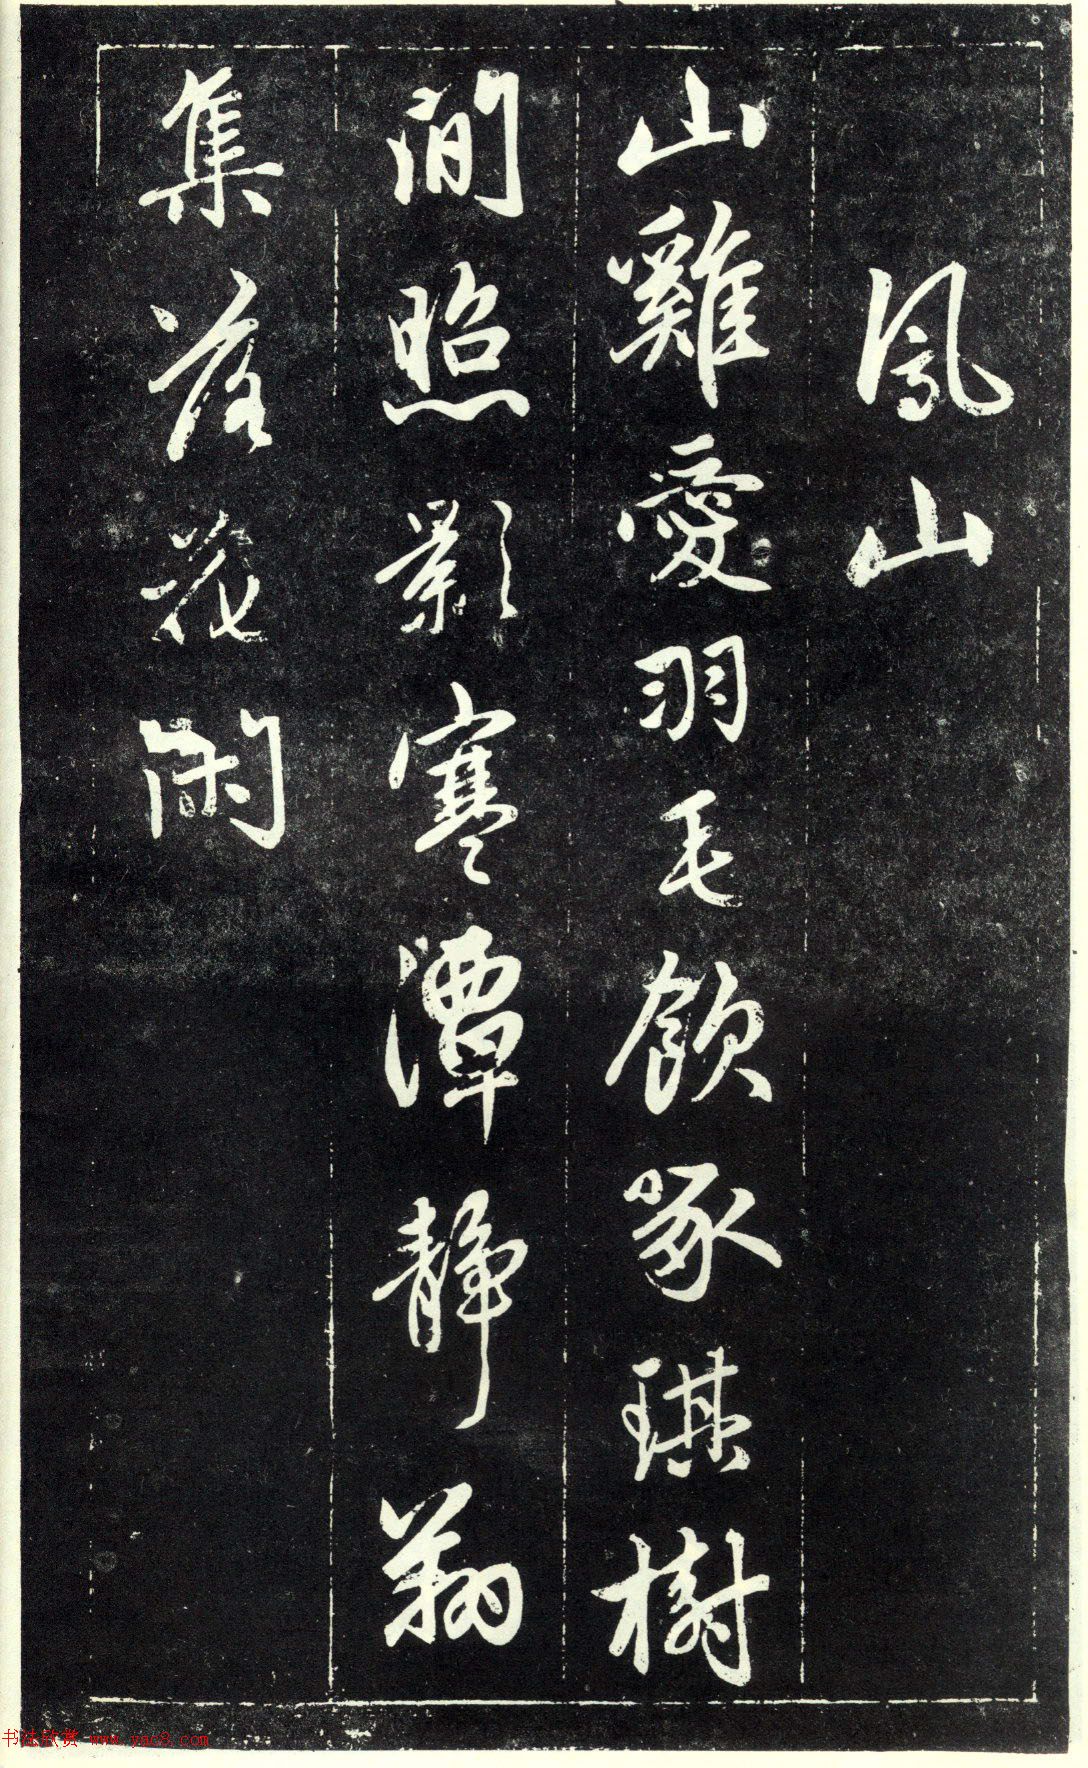 鳳山
山雞愛羽毛飲啄琪樹
間照影寒潭靜翔
集落花閑
书法欣赏 www.yac8.com